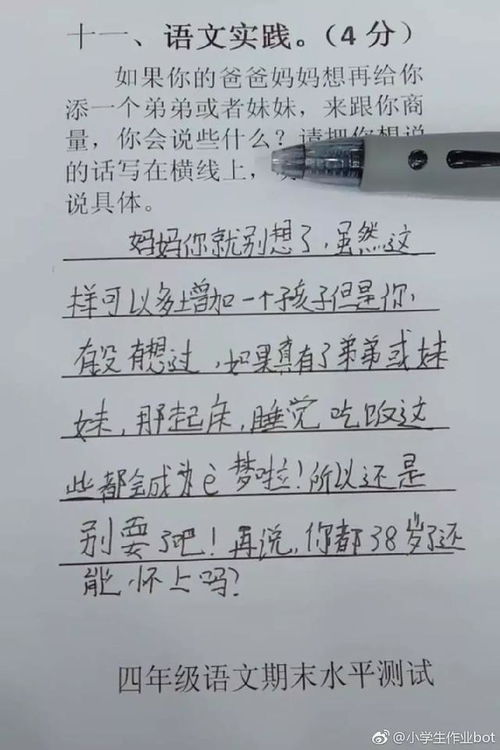 十一、语文实践。(4分)
如果你的爸爸妈妈想再给你
添一个弟弟或者妹妹，来跟你商
量，你会说些什么？请把你想说
的话写在横线上，
说具体。
妈妈你就别想了，虽然这
样可以多增加一个孩子但是你，
有没有想过，如果真有了弟弟或妹
妹，那起床，睡觉吃饭这
些都会成为è梦啦！所以还是
别要了吧！再说，你都38岁了还
能怀上吗？
四年级语文期末水平测试
@小学生作业bot